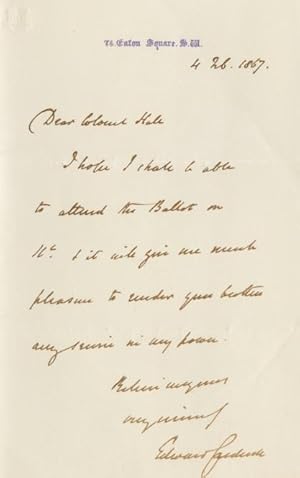 Eaton Square. S.W.
4 Feb. 1867.
Dear Colonel
I hope I shall be able
to attend the Ballot on
& it will give me much
pleasure to render your brother
any service in my power.
Believe me yours
very sincerely
Edward